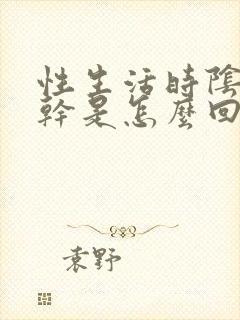 性生活時陰
幹是怎麼回
袁野